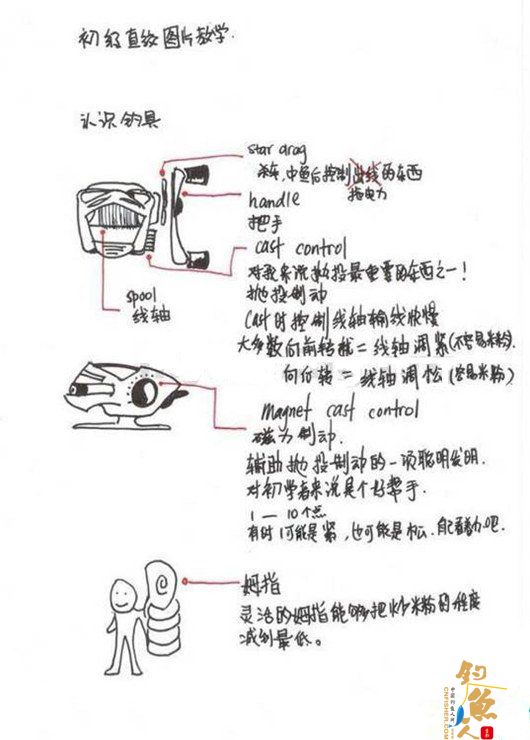 初级直纹图片教学.
认识钓具
star drag
刹车,中鱼后控制出线的东西
拖曳力
handle
把手
cast control
对我来说抛投最重要的东西之一!
抛投制动
Cast时控制线轴输线快慢
大多数向前转就=线轴调紧(不容易米粉)
向后转=线轴调松(容易米粉)
spool
线轴
magnet cast control
磁力制动.
辅助抛投制动的一项聪明发明.
对初学者来说是个好帮手.
1—10个点
有时1可能是紧,也可能是松.自己看着办吧.
姆指
灵活的姆指能够把炒米粉的程度
减到最低。
钓鱼人
中国钓鱼人网
CNFISHER.COM